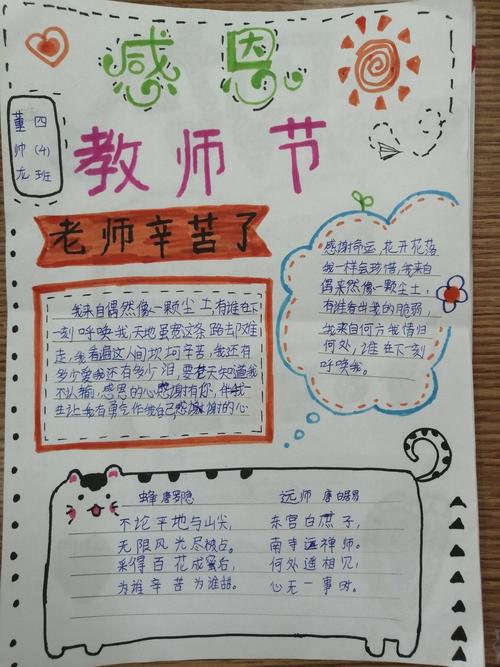 感恩
四(4)班
董帅龙
教师节
老师辛苦了
我来自偶然像一颗尘土有谁在下
一刻呼唤我,天地虽宽这条路去难
走,我看遍这人间坎坷辛苦,我还有
多少爱我还有多少泪,要老天知道我
不认输,感恩的心感谢有您,伴我一
生让我有勇气作我自己感谢的心
感谢命运,花开花落
我一样会珍惜,我来自
偶果然像一颗尘土,
有谁看出我的脆弱,
我来自何方我情归
何处,谁在下一刻
呼唤我。
蜂 唐罗隐
不论平地与山尖,
无限风光尽被占。
采得百花成蜜后,
为谁辛苦为谁甜。
远师 唐白居易
东宫白庶子,
南寺远禅师。
何处遥相见,
心无一事时。